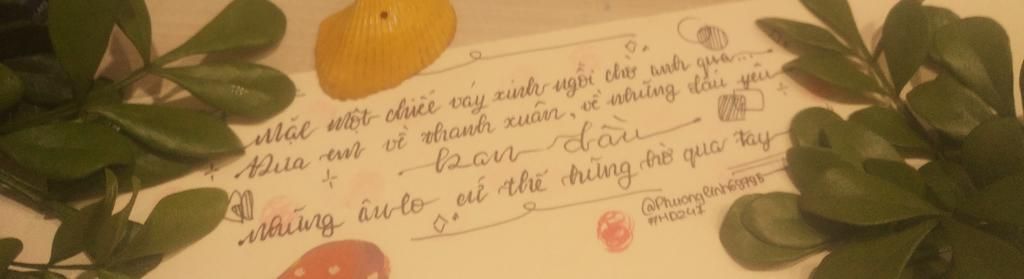 Mặc một chiếc váy xinh ngồi chờ anh qua...
Đưa em về thanh xuân, về những dấu yêu
ban đầu
những âu lo cứ thế hững hờ qua tay
@Phuonglinh68795
#HD247